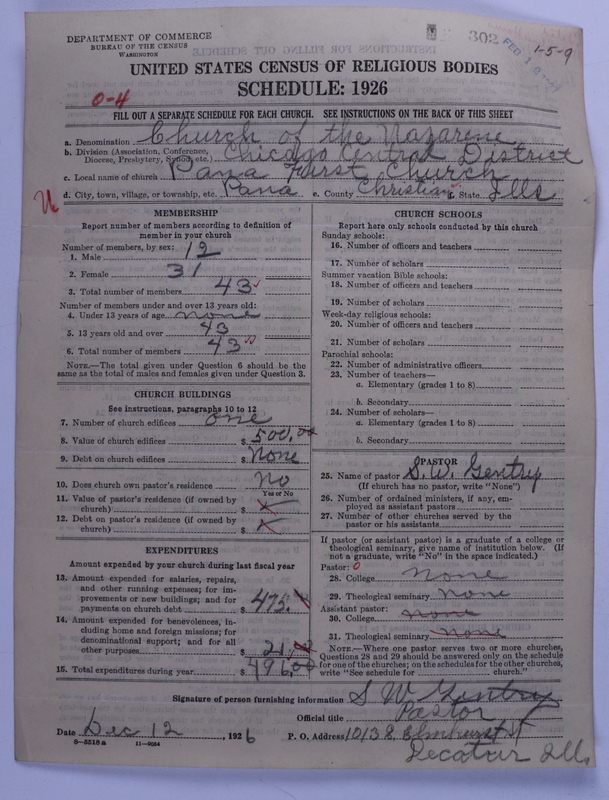 DEPARTMENT OF COMMERCE
BUREAU OF THE CENSUS
WASHINGTON
302
FEB
1-5-9
UNITED STATES CENSUS OF RELIGIOUS BODIES
SCHEDULE: 1926
0-4
FILL OUT A SEPARATE SCHEDULE FOR EACH CHURCH. SEE INSTRUCTIONS ON THE BACK OF THIS SHEET
a. Denomination Church of the Nazarene
b. Division (Association, Conference, Diocese, Presbytery, Synod, etc.) Chicago Central District
c. Local name of church Pana First Church
d. City, town, village, or township, etc. Pana e. County Christian f. State Ills
MEMBERSHIP
Report number of members according to definition of
member in your church
Number of members, by sex:
1. Male 12
2. Female 31
3. Total number of members 43
Number of members under and over 13 years old:
4. Under 13 years of age none
5. 13 years old and over 43
6. Total number of members 43
NOTE.—The total given under Question 6 should be the
same as the total of males and females given under Question 3.
CHURCH BUILDINGS
See instructions, paragraphs 10 to 12
7. Number of church edifices one
8. Value of church edifices $ 500.00
9. Debt on church edifices $ None
10. Does church own pastor's residence No
Yes or No
11. Value of pastor's residence (if owned by
church) $ x
12. Debt on pastor's residence (if owned by
church) $ x
EXPENDITURES
Amount expended by your church during last fiscal year
13. Amount expended for salaries, repairs,
and other running expenses; for im-
provements or new buildings; and for
payments on church debt $ 475.
14. Amount expended for benevolences, in-
cluding home and foreign missions; for
denominational support; and for all
other purposes $ 21.
15. Total expenditures during year $ 496.00
CHURCH SCHOOLS
Report here only schools conducted by this church
Sunday schools:
16. Number of officers and teachers
17. Number of scholars
Summer vacation Bible schools:
18. Number of officers and teachers
19. Number of scholars
Week-day religious schools:
20. Number of officers and teachers
21. Number of scholars
Parochial schools:
22. Number of administrative officers
23. Number of teachers—
a. Elementary (grades 1 to 8)
b. Secondary
24. Number of scholars—
a. Elementary (grades 1 to 8)
b. Secondary
PASTOR
25. Name of pastor S. W. Gentry
(If church has no pastor, write "None")
26. Number of ordained ministers, if any, em-
ployed as assistant pastors
27. Number of other churches served by the
pastor or his assistants
If pastor (or assistant pastor) is a graduate of a college or
theological seminary, give name of institution below. (If
not a graduate, write "No" in the space indicated.)
Pastor: 0
28. College None
29. Theological seminary None
Assistant pastor:
30. College None
31. Theological seminary None
NOTE.—Where one pastor serves two or more churches,
Questions 28 and 29 should be answered only on the schedule
for one of the churches; on the schedules for the other churches,
write "See schedule for church."
Signature of person furnishing information S W Gentry
Official title Pastor
Date Dec 12, 1926 P. O. Address 1013 E Elmhurst St
8—5518a 11—9054
Decatur Ills.